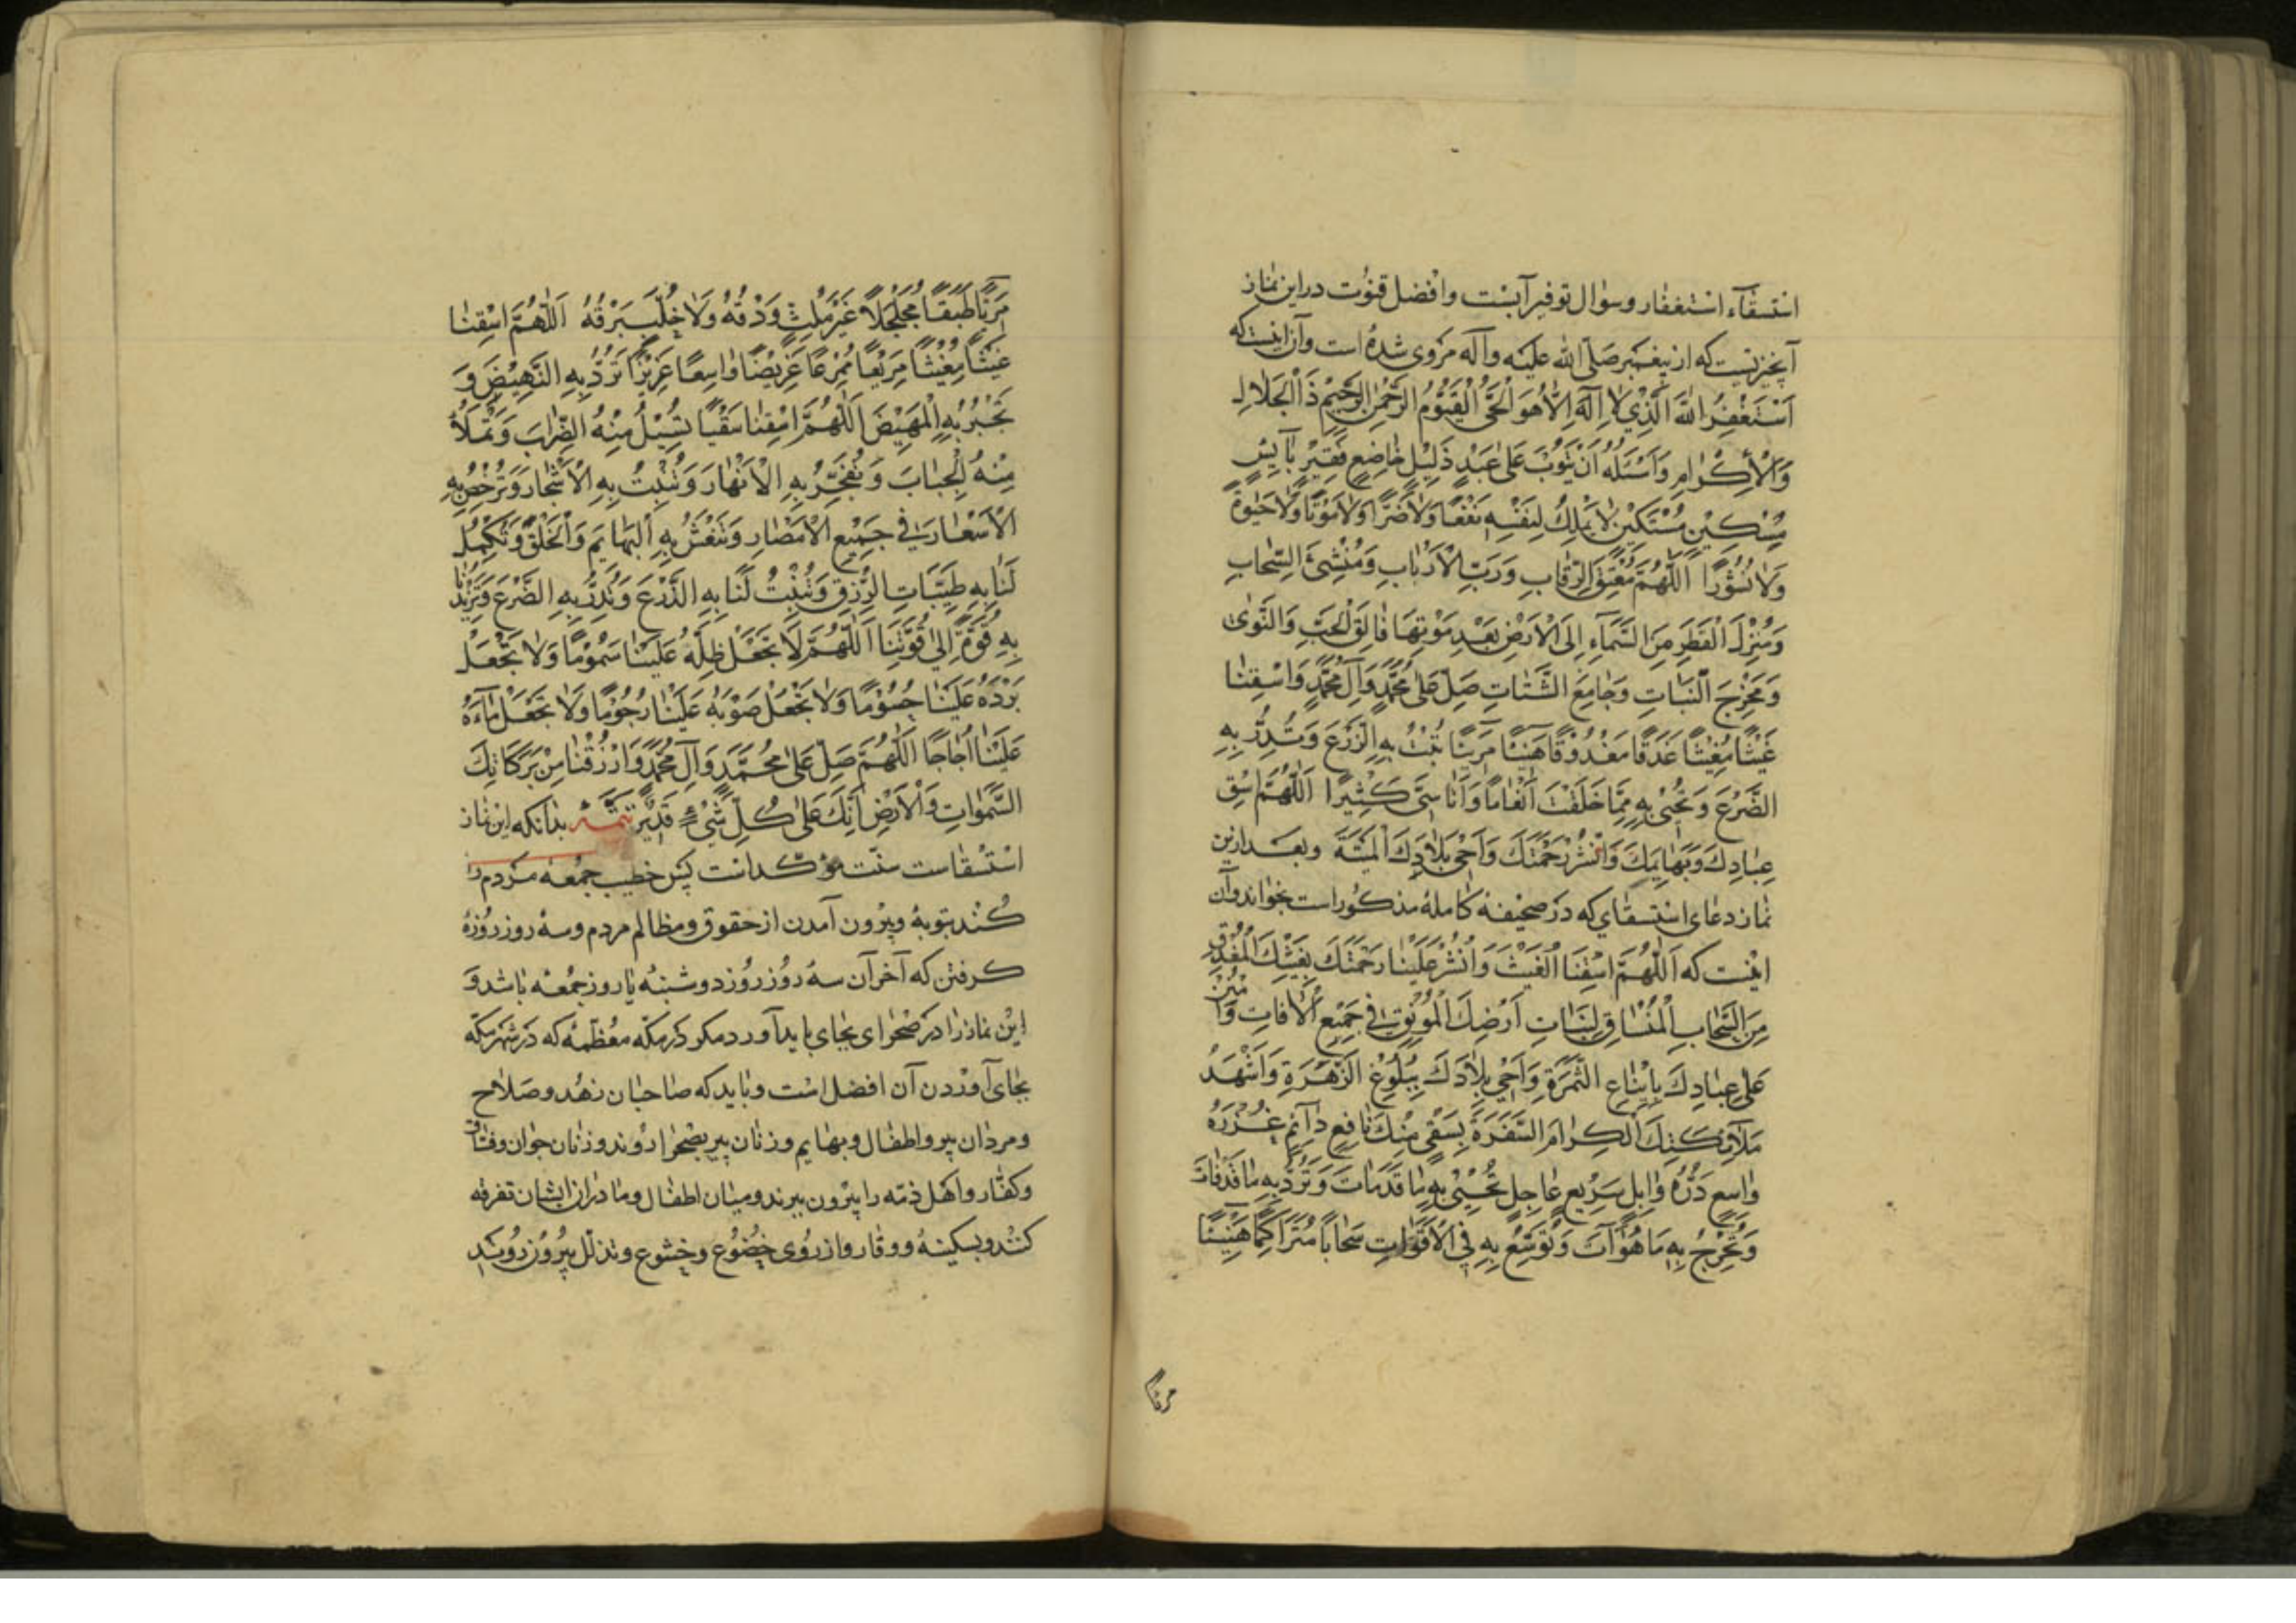 استسقآء استغفار وسوال توفیر آبست وافضل قنوت دراین نماز
آنچیزیست که از پیغمبر صَلّی الله عَلَیْه وآله مَرْوی شدهٔ است وآن اینست که
اَسْتَغْفِرُ اللّٰهَ الَّذِیْ لَا اِلٰهَ اِلَّا هُوَ الْحَیُّ الْقَیُّوْمُ الرَّحْمٰنُ الرَّحِیْمُ ذَا الْجَلَالِ
وَالْاِكْرٰامِ وَاَسْئَلُهُ اَنْ یَتُوْبَ عَلیٰ عَبْدٍ ذَلِیْلٍ خٰاضِعٍ فَقِیْرٍ بٰآئِسٍ
مِسْكِیْنٍ مُسْتَكِیْنٍ لٰا یَمْلِكُ لِنَفْسِهِ نَفْعًا وَلٰا ضَرًّا وَلٰا مَوْتًا وَلٰا حَیٰوةً
وَلٰا نُشُوْرًا اَللّٰهُمَّ مُعْتِقَ الرِّقَابِ وَرَبَّ الْاَرْبٰابِ وَمُنْشِئَ السَّحٰابِ
وَمُنْزِلَ الْقَطْرِ مِنَ السَّمٰآءِ اِلَی الْاَرْضِ بَعْدَ مَوْتِهَا فٰالِقَ الْحَبِّ وَالنَّوٰی
وَمُخْرِجَ النَّبٰاتِ وَجٰامِعَ الشَّتٰاتِ صَلِّ عَلیٰ مُحَمَّدٍ وَآلِ مُحَمَّدٍ وَاسْقِنٰا
غَیْثًا مُغِیْثًا غَدَقًا مُغْدَوْدَقًا هَنِیْئًا مَرِیْئًا تُنْبِتُ بِهِ الزَّرْعَ وَتُدِرُّ بِهِ
الضَّرْعَ وَتُحْیِیْ بِهِ مِمَّا خَلَقْتَ اَنْعٰامًا وَاَنٰاسِیَّ كَثِیْرًا اَللّٰهُمَّ اسْقِ
عِبٰادَكَ وَبَهٰایِمَكَ وَانْشُرْ رَحْمَتَكَ وَاَحْیِ بِلٰادَكَ الْمَیِّتَةَ وبعد ازین
نماز دعای استسقای که در صحیفهٔ کاملهٔ مذکور است بخواند وآن
اینست که اَللّٰهُمَّ اسْقِنَا الْغَیْثَ وَانْشُرْ عَلَیْنٰا رَحْمَتَكَ بِغَیْثِكَ الْمُغْدِقِ
مِنَ السَّحٰابِ الْمُنْسٰاقِ لِنَبٰاتِ اَرْضِكَ الْمُوْنِقِ فِیْ جَمِیْعِ الْاٰفٰاقِ وَامْنُنْ
عَلیٰ عِبٰادِكَ بِاِیْنٰاعِ الثَّمَرَةِ وَاَحْیِ بِلٰادَكَ بِبُلُوْغِ الزَّهْرَةِ وَاَشْهِدْ
مَلٰآئِكَتَكَ الْكِرٰامَ السَّفَرَةَ بِسَقْیٍ مِنْكَ نٰافِعٍ دٰآئِمٍ غُزْرُهُ
وٰاسِعٍ دَرُّهُ وٰابِلٍ سَرِیْعٍ عٰاجِلٍ تُحْیِیْ بِهِ مٰا قَدْ مٰاتَ وَتَرُدُّ بِهِ مٰا قَدْ فٰاتَ
وَتُخْرِجُ بِهِ مَا هُوَ آتٍ وَتُوَسِّعُ بِهِ فِی الْاَقْوٰاتِ سَحٰابًا مُتَرٰاكِمًا هَنِیْئًا
مریًا
مَرِیًّا طَبَقًا مُجَلْجَلًا غَیْرَ مُلِثٍّ وَدْقُهُ وَلٰا خُلَّبٍ بَرْقُهُ اَللّٰهُمَّ اسْقِنٰا
غَیْثًا مُغِیْثًا مَرِیْعًا مُمْرِعًا عَرِیْضًا وٰاسِعًا غَزِیْرًا تَرُدُّ بِهِ النَّهِیْضَ وَ
تَجْبُرُ بِهِ الْمَهِیْضَ اَللّٰهُمَّ اسْقِنٰا سَقْیًا تُسِیْلُ مِنْهُ الظِّرٰابَ وَتَمْلَأُ
مِنْهُ الْجِبٰابَ وَتُفَجِّرُ بِهِ الْاَنْهٰارَ وَتُنْبِتُ بِهِ الْاَشْجٰارَ وَتُرْخِصُ بِهِ
الْاَسْعٰارَ فِیْ جَمِیْعِ الْاَمْصٰارِ وَتَنْعَشُ بِهِ الْبَهٰایِمَ وَالْخَلْقَ وَتُكْمِلُ
لَنٰا بِهِ طَیِّبٰاتِ الرِّزْقِ وَتُنْبِتُ لَنٰا بِهِ الزَّرْعَ وَتُدِرُّ بِهِ الضَّرْعَ وَتَزِیْدُنٰا
بِهِ قُوَّةً اِلیٰ قُوَّتِنَا اَللّٰهُمَّ لَا تَجْعَلْ ظِلَّهُ عَلَیْنٰا سَمُوْمًا وَلٰا تَجْعَلْ
بَرْدَهُ عَلَیْنٰا حُسُوْمًا وَلٰا تَجْعَلْ صَوْبَهُ عَلَیْنٰا رُجُوْمًا وَلٰا تَجْعَلْ مٰآءَهُ
عَلَیْنٰا اُجٰاجًا اَللّٰهُمَّ صَلِّ عَلیٰ مُحَمَّدٍ وَآلِ مُحَمَّدٍ وَارْزُقْنٰا مِنْ بَرَكٰاتِكَ
السَّمٰوٰاتِ وَالْاَرْضِ اِنَّكَ عَلیٰ كُلِّ شَیْءٍ قَدِیْرٌ تتمّه بدانکه این نماز
استسقاست سنّت مؤکد است پس خطیب جمعهٔ مردم را
کند بتوبهٔ وبیرون آمدن از حقوق ومظالم مردم وسهٔ روز روزهٔ
کرفتن که آخر آن سهٔ روز روز دوشنبهٔ یا روز جمعهٔ باشد وَ
این نماز را در صحرای بجای باید آورد مکر در مکّه معظّمهٔ که در شهر مکّه
بجای آوردن آن افضل است وباید که صاحبان زهد وصَلاح
ومردان پیر واطفال وبهایم وزنان پیر بصحرا روند وزنان جوان وفسّاق
وکفّار واهل ذمّه را بیرون نبرند ومیان اطفال ومادران ایشان تفرقه
کنند وبسکینهٔ ووقار واز روی خضوع وخشوع وتذلّل بیرون روند